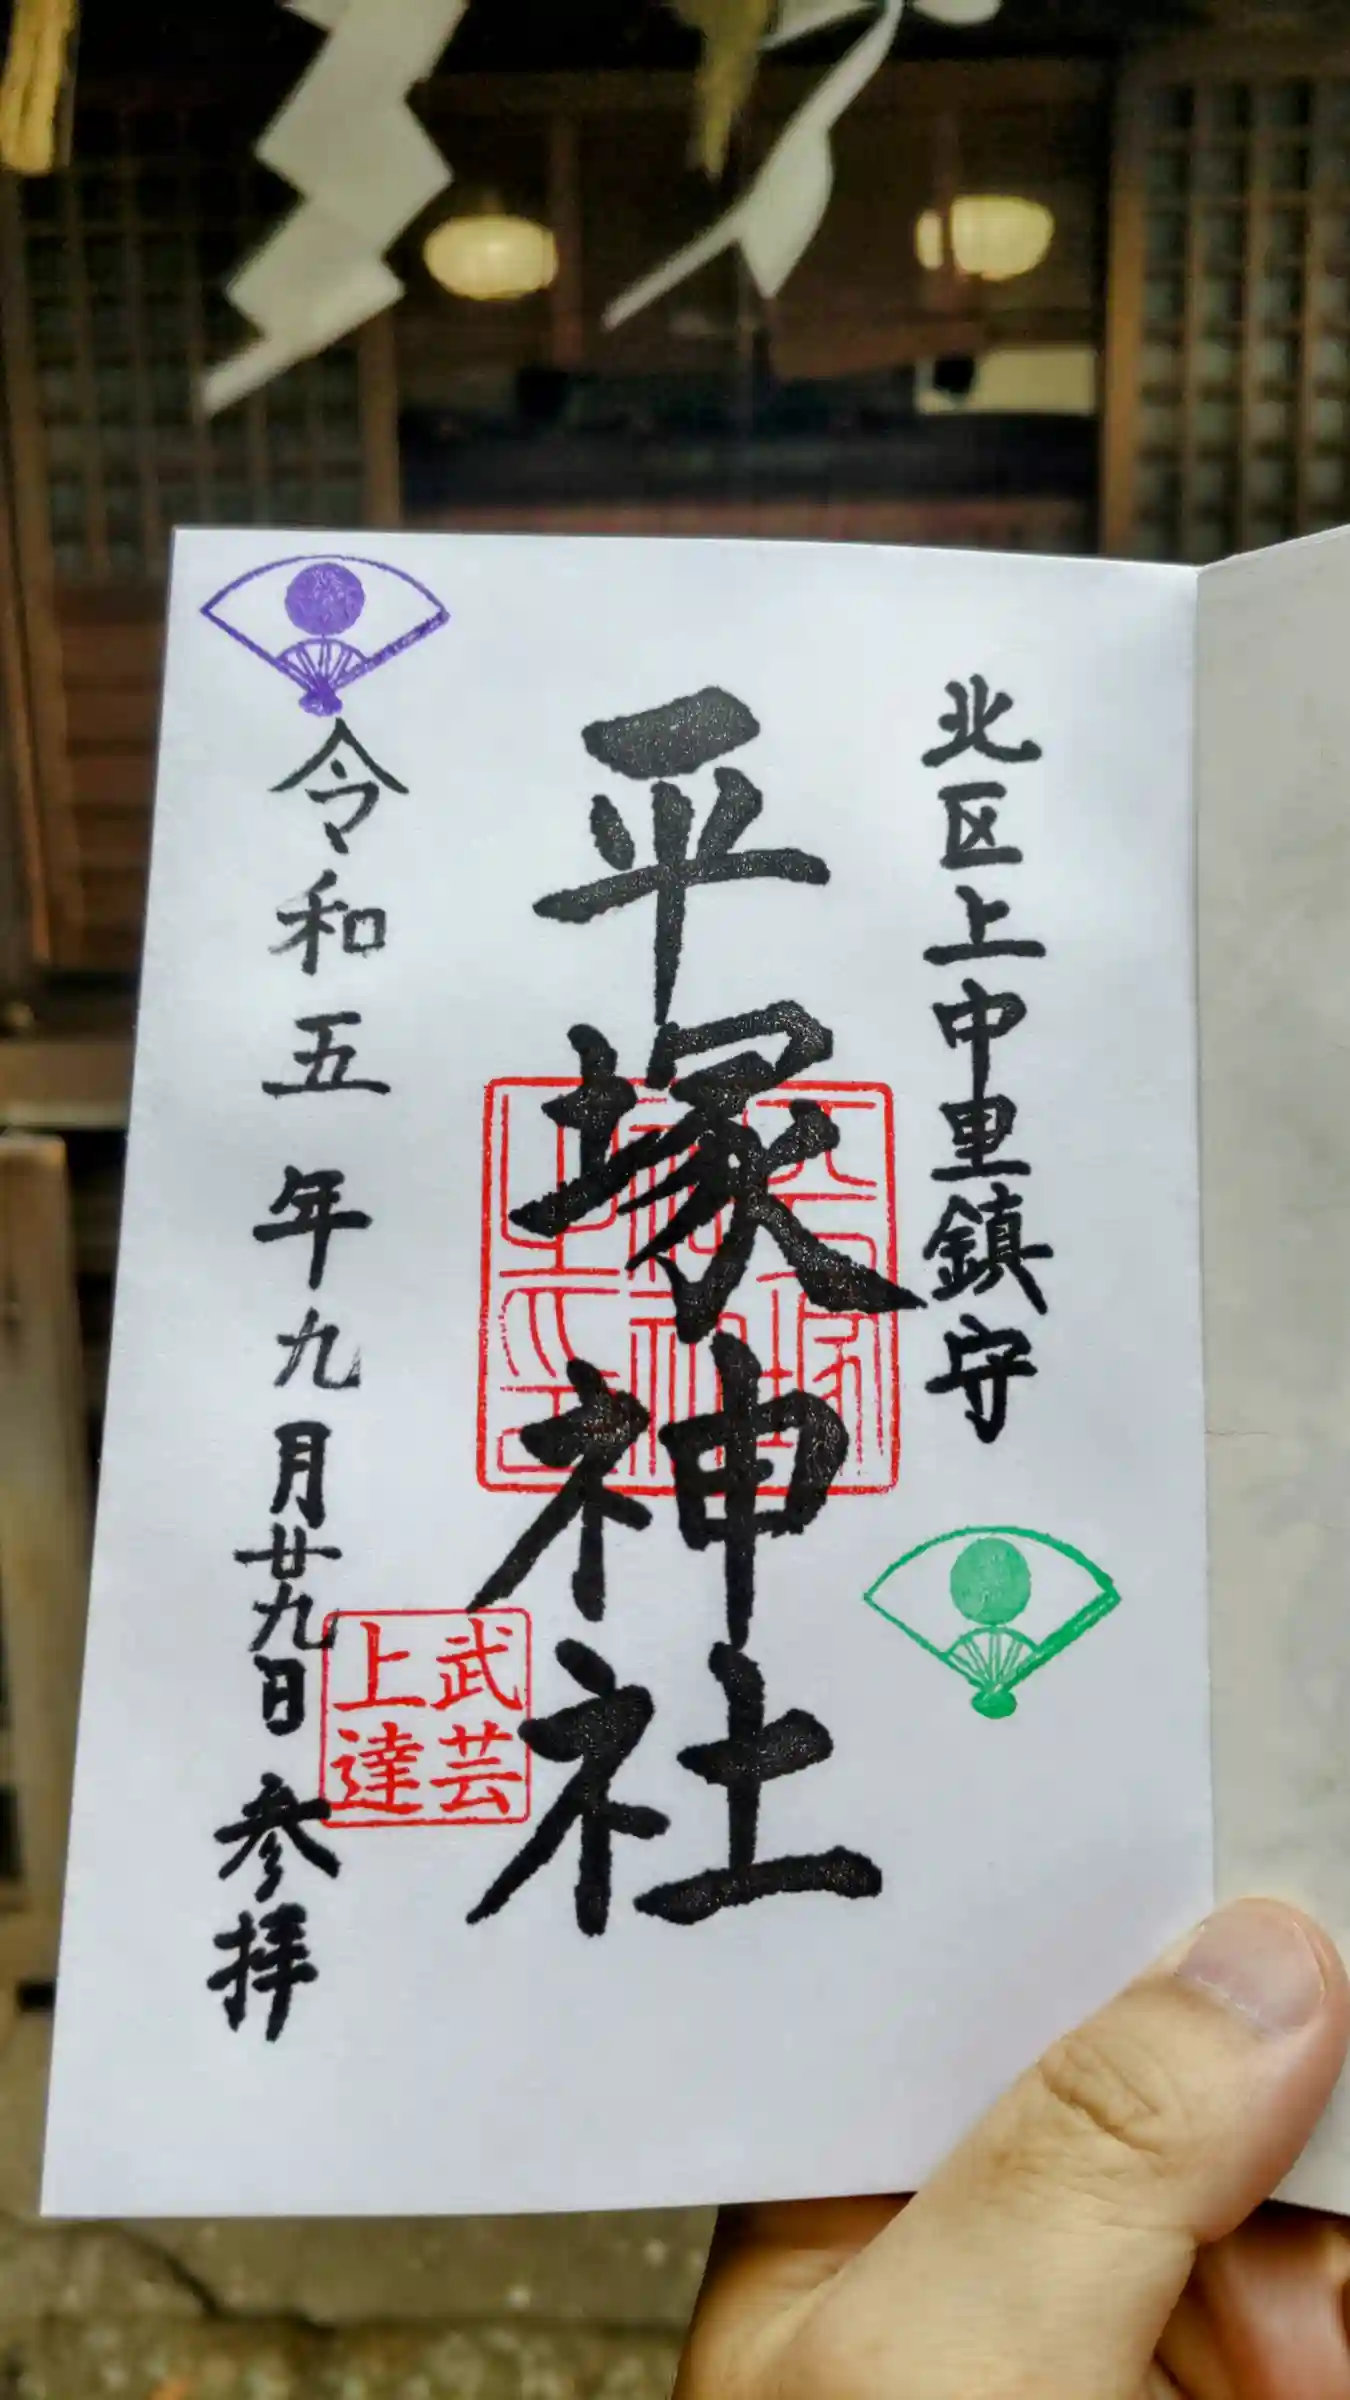 北区上中里鎮守
平塚神社
平塚神社之印
武芸上達
令和五年九月廿九日参拝